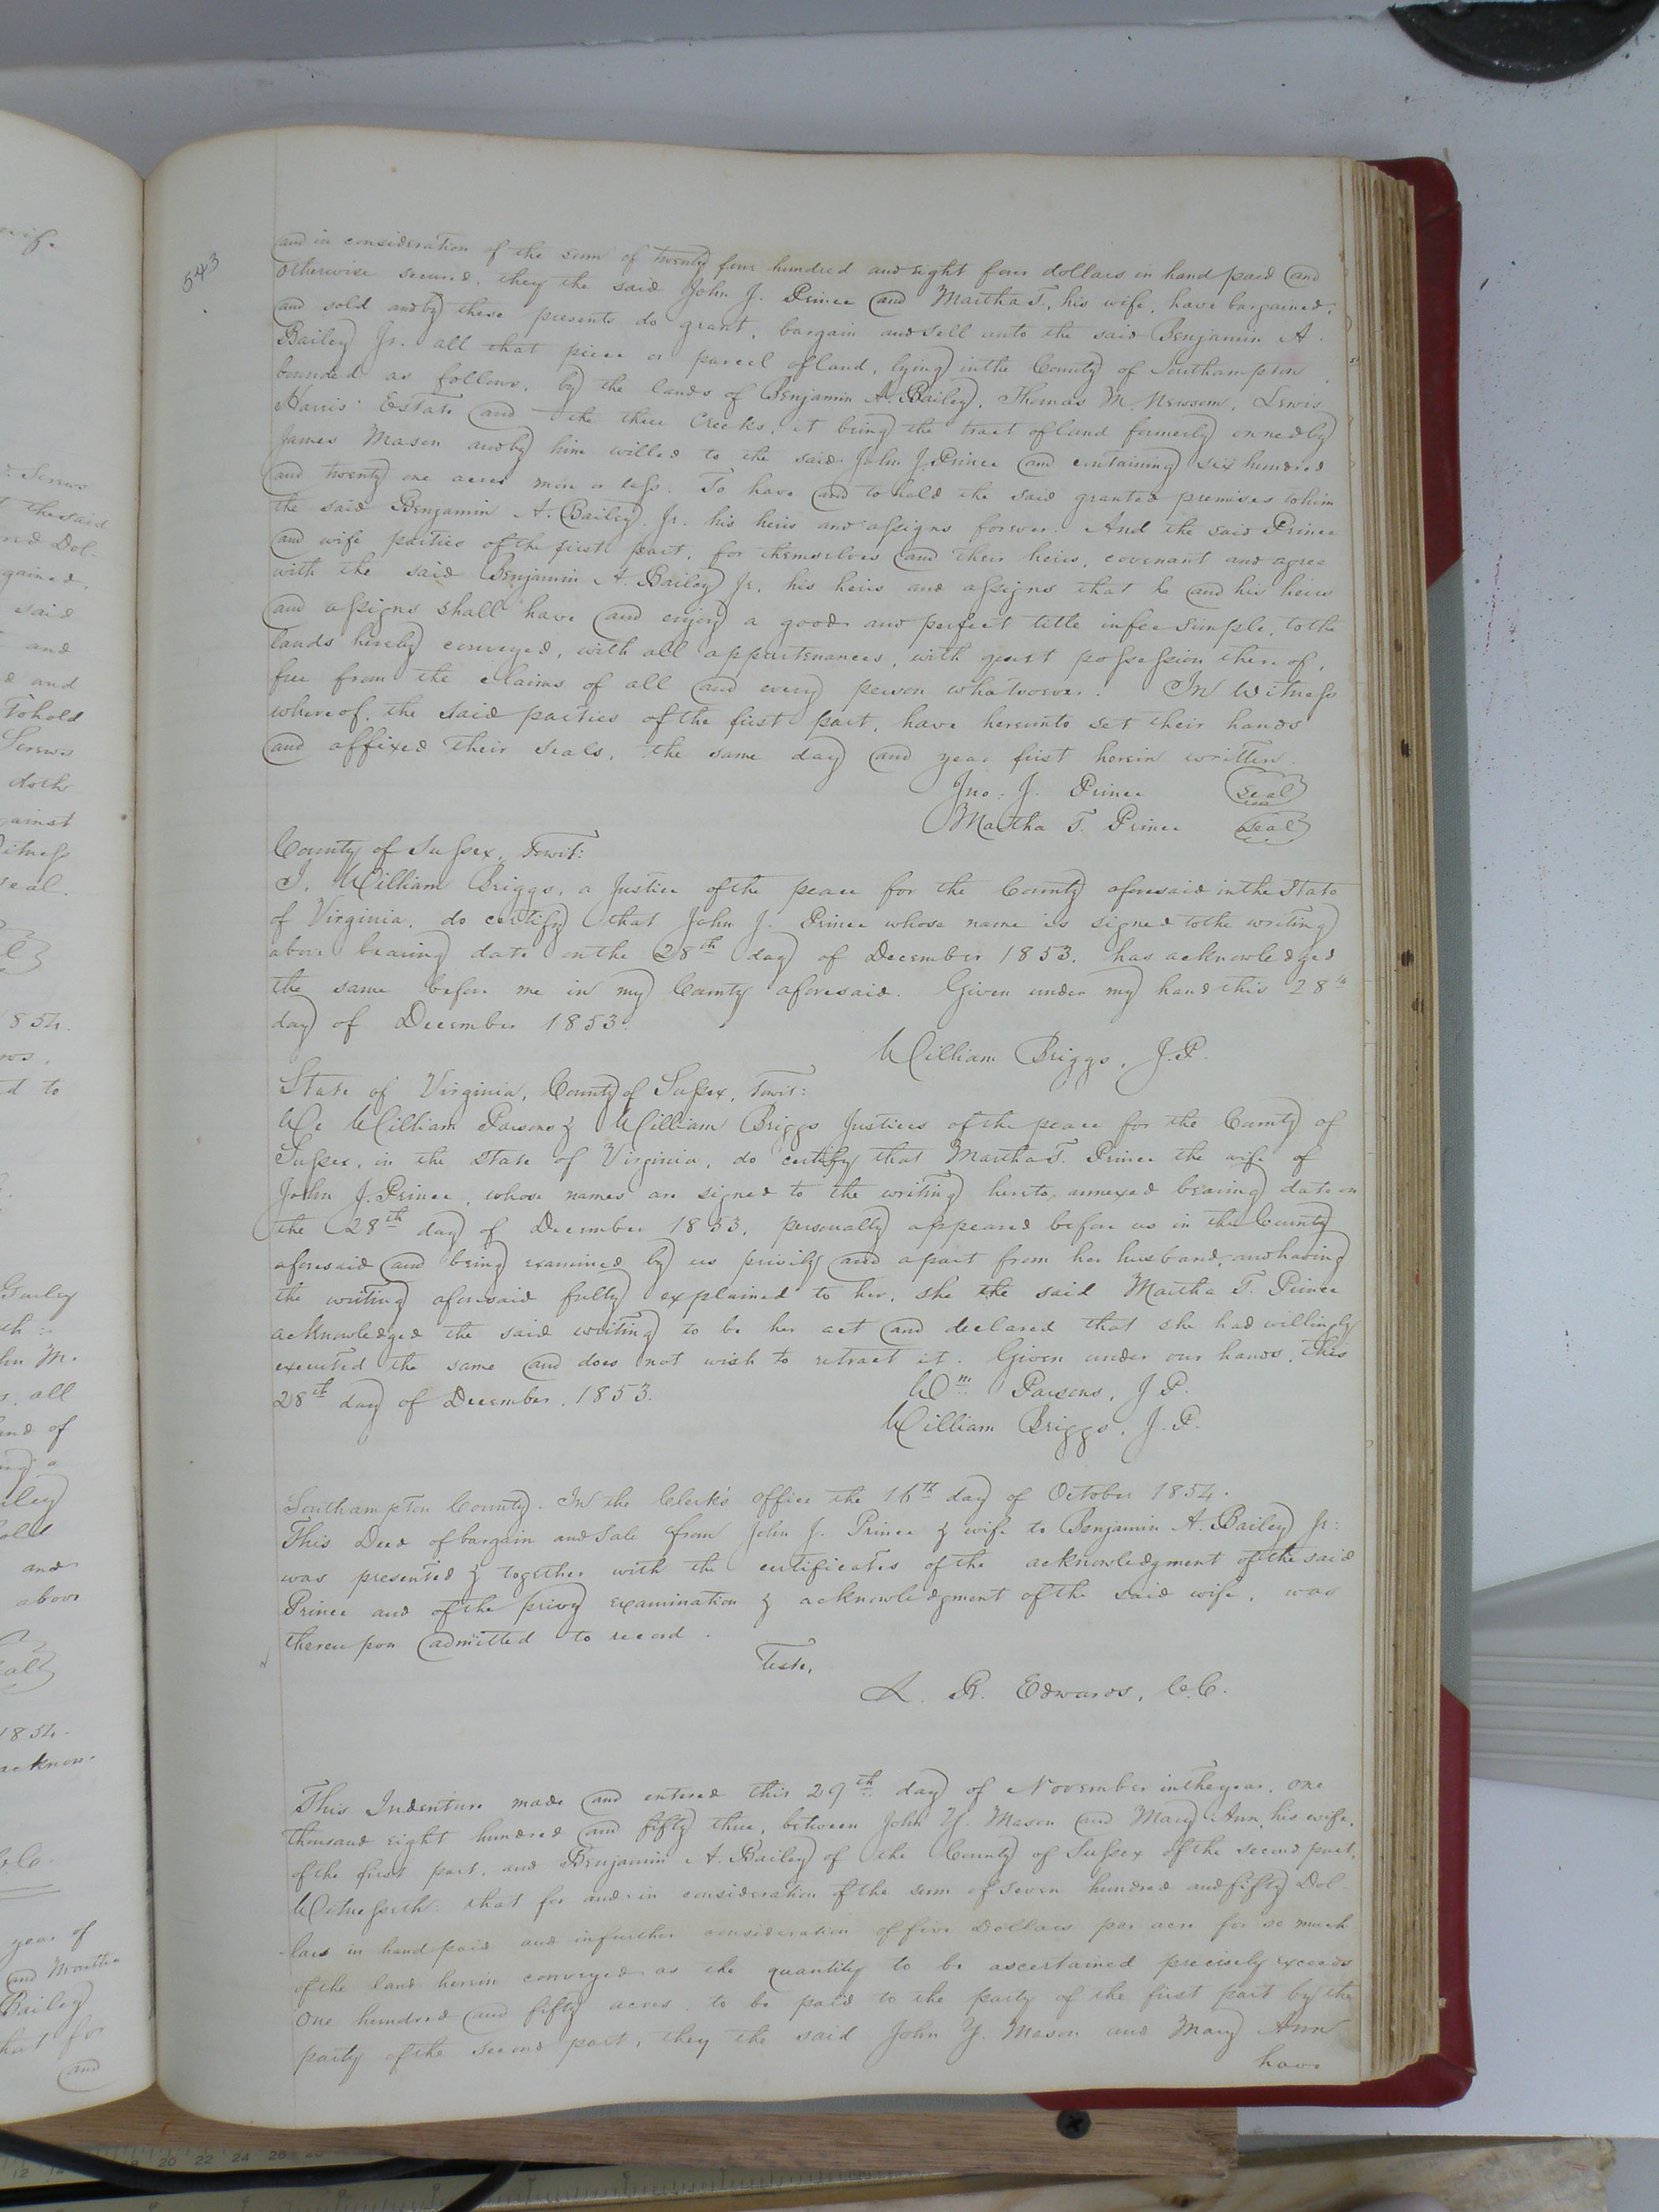 543
and in consideration of the sum of twenty four hundred and eight four dollars in hand paid and
otherwise secured, they the said John J. Prince and Martha T., his wife, have bargained,
and sold and by these presents do grant, bargain and sell unto the said Benjamin A.
Bailey Jr. all that piece or parcel of land, lying in the County of Southampton
bounded as follows, by the lands of Benjamin A. Bailey, Thomas M. Newsom, Lewis
Harris' Estate and the three Creeks, it being the tract of land formerly owned by
James Mason and by him willed to the said John J. Prince and containing six hundred
and twenty one acres more or less. To have and to hold the said granted premises to him
the said Benjamin A. Bailey Jr. his heirs and assigns forever. And the said Prince
and wife parties of the first part, for themselves and their heirs, covenant and agree
with the said Benjamin A. Bailey Jr. his heirs and assigns that he and his heirs
and assigns shall have and enjoy a good and perfect title in fee simple, to the
lands hereby conveyed, with all appurtenances, with quiet possession there of,
free from the claims of all and every person whatsoever. In Witness
whereof, the said parties of the first part, have hereunto set their hands
and affixed their seals, the same day and year first herein written.
Jno. J. Prince Seal
Martha T. Prince Seal
County of Sussex, Towit:
I, William Briggs, a Justice of the peace for the County aforesaid in the State
of Virginia, do certify that John J. Prince whose name is signed to the writing
above bearing date on the 28th day of December 1853, has acknowledged
the same before me in my County aforesaid. Given under my hand this 28th
day of December 1853.
William Briggs, J.P.
State of Virginia, County of Sussex, Towit:
We William Parsons & William Briggs Justices of the peace for the County of
Sussex, in the State of Virginia, do certify that Martha T. Prince the wife of
John J. Prince, whose names are signed to the writing hereto annexed bearing date on
the 28th day of December 1853, personally appeared before us in the County
aforesaid and being examined by us privily and apart from her husband, and having
the writing aforesaid fully explained to her, she the said Martha T. Prince
acknowledged the said writing to be her act and declared that she had willingly
executed the same and does not wish to retract it. Given under our hands, this
28th day of December, 1853.
Wm. Parsons, J.P.
William Briggs, J.P.
Southampton County. In the Clerk's office the 16th day of October 1854.
This Deed of bargain and Sale from John J. Prince & wife to Benjamin A. Bailey Jr:
was presented & together with the certificates of the acknowledgment of the said
Prince and of the privy examination & acknowledgment of the said wife, was
thereupon admitted to record.
Teste,
L. R. Edwards, C.C.
This Indenture made and entered this 29th day of November in the year, one
thousand eight hundred and fifty three, between John Y. Mason and Mary Ann, his wife,
of the first part, and Benjamin A. Bailey of the County of Sussex of the second part,
Witnesseth: that for and in consideration of the sum of seven hundred and fifty Dol-
lars in hand paid and in further consideration of five Dollars per acre for so much
of the land herein conveyed as the quantity to be ascertained precisely exceeds
One hundred and fifty acres, to be paid to the party of the first part by the
party of the second part, they the said John Y. Mason and Mary Ann
have